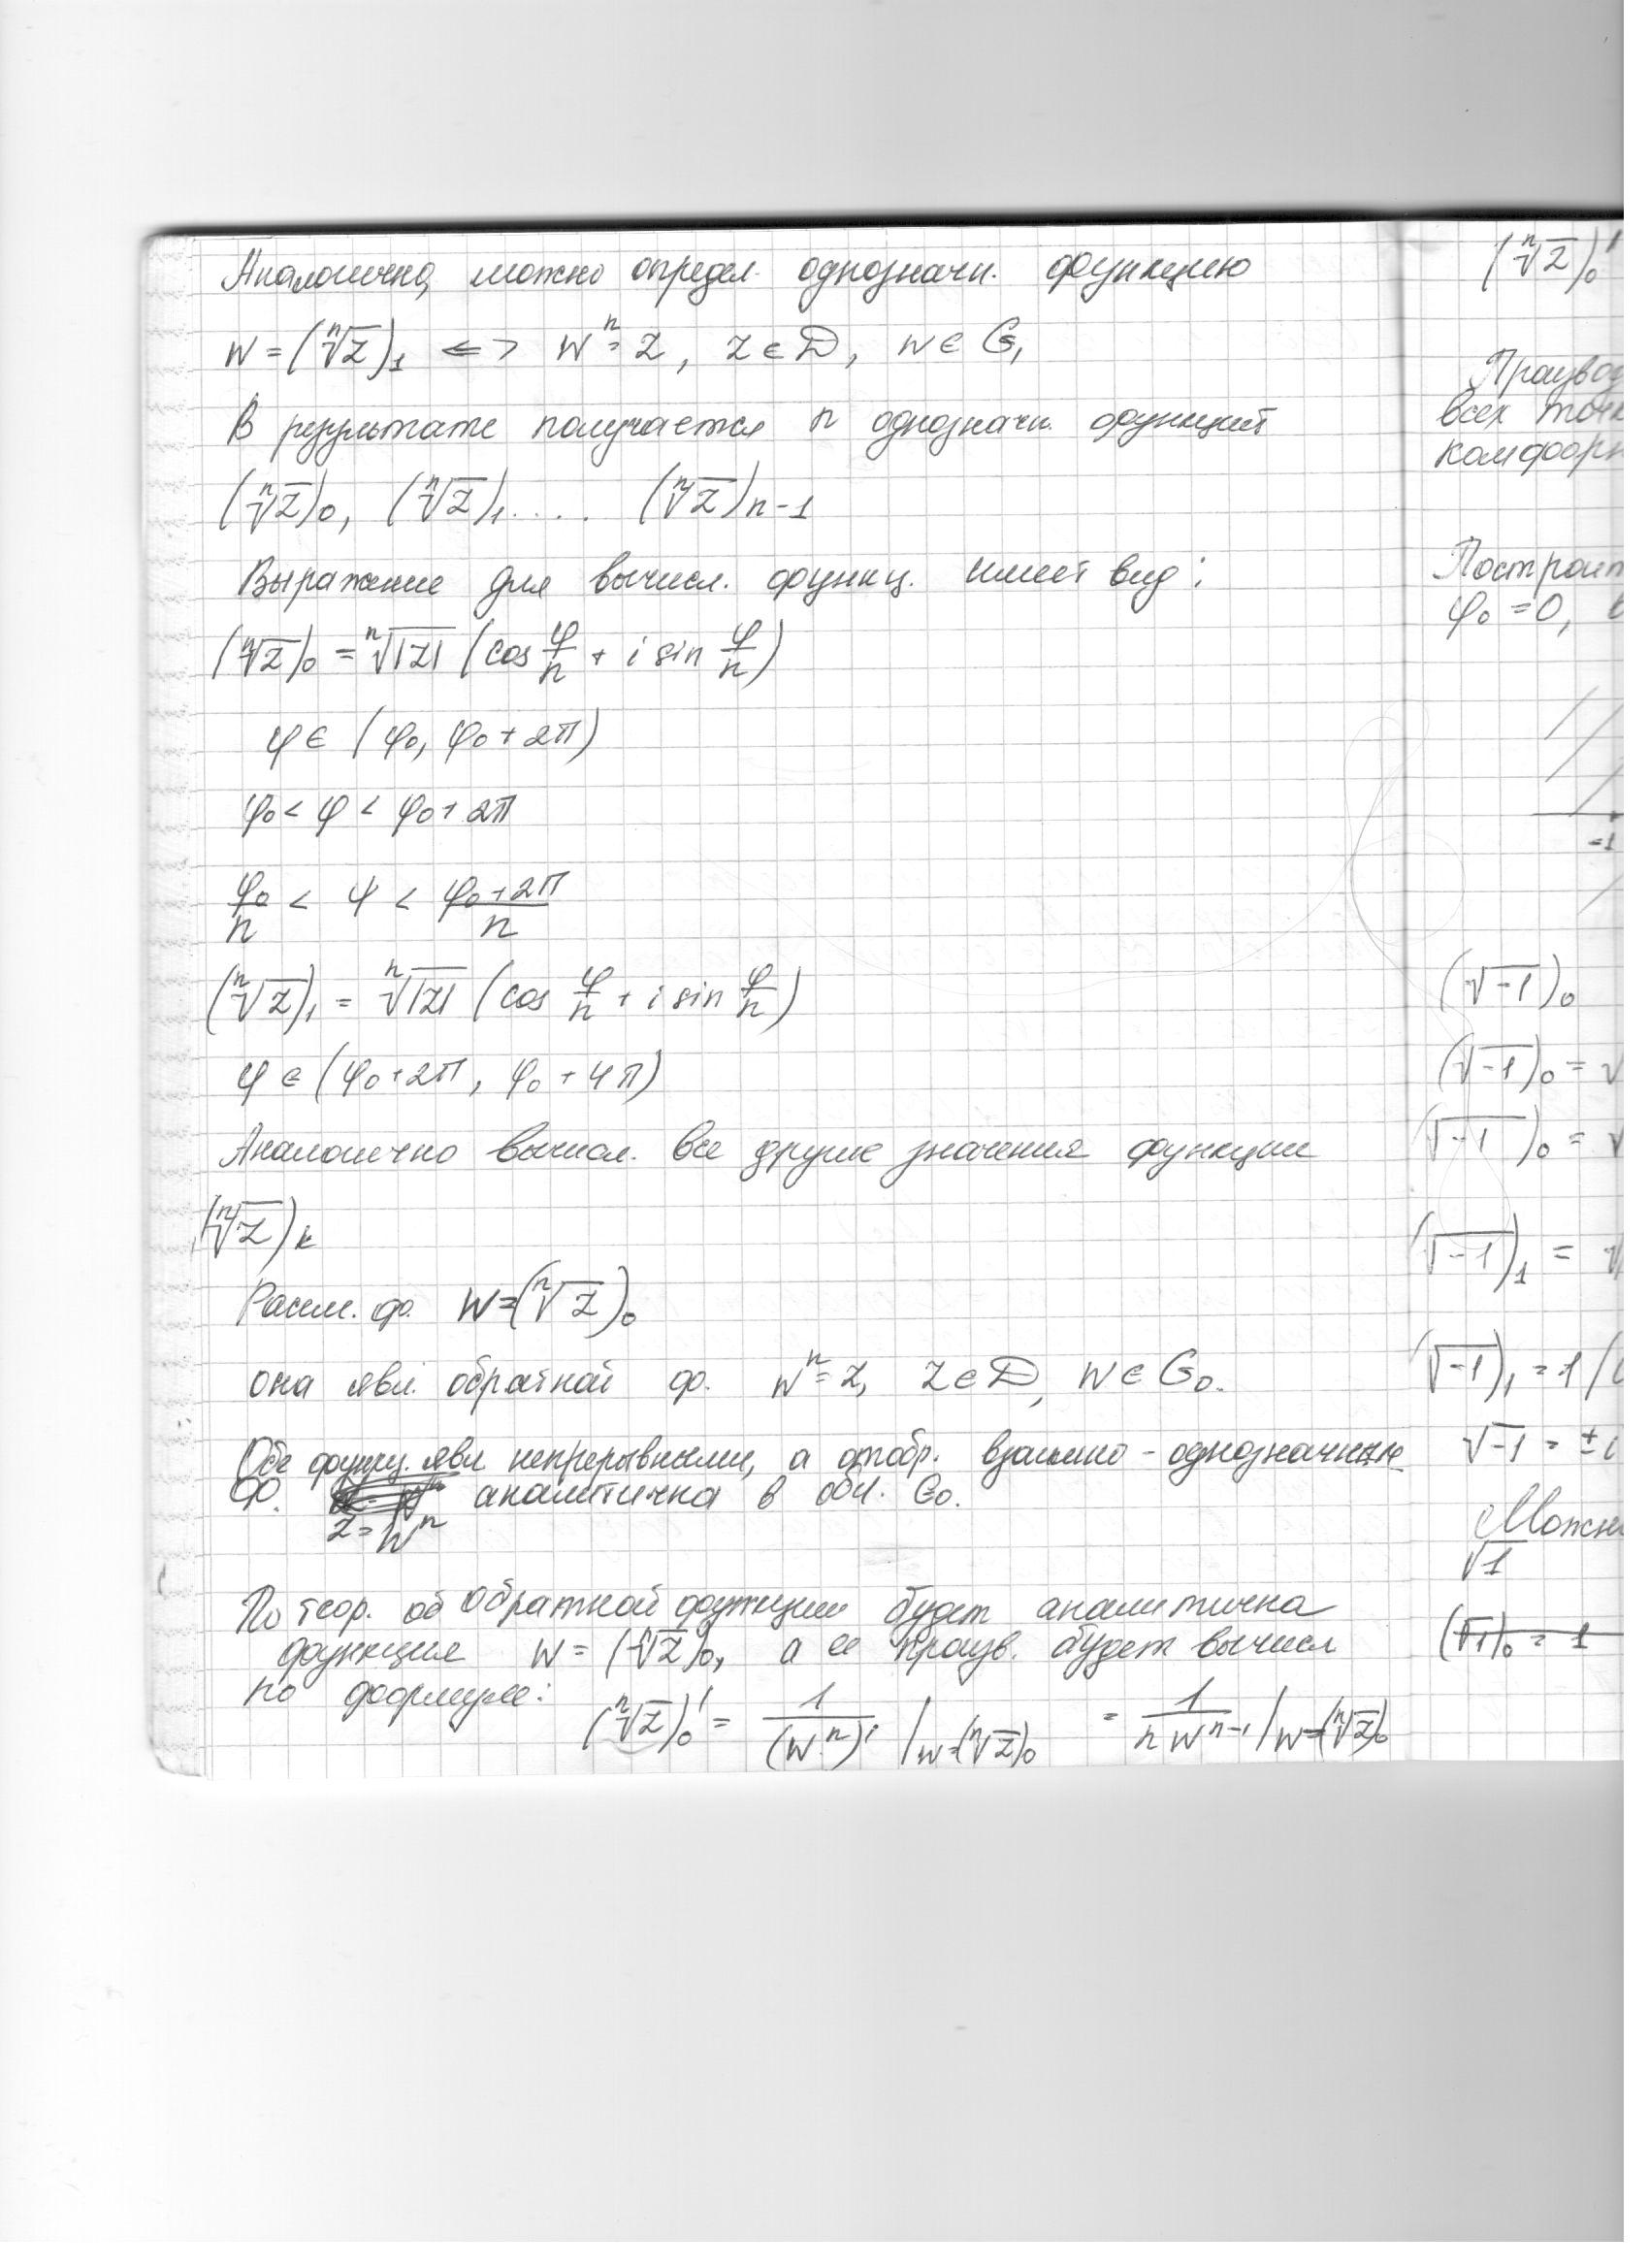 Аналогично, можно определ. однозначн. функцию
W = (ⁿ√z)₁ <=> Wⁿ = z, z ∈ D, w ∈ G₁
В результате получается n однозначн. функций
(ⁿ√z)₀, (ⁿ√z)₁ .... (ⁿ√z)n-1
Выражение для вычисл. функц. имеет вид:
(ⁿ√z)₀ = ⁿ√|z| (cos φ/n + i sin φ/n)
φ ∈ (φ₀, φ₀ + 2π)
φ₀ < φ < φ₀ + 2π
φ₀/n < ψ < (φ₀ + 2π)/n
(ⁿ√z)₁ = ⁿ√|z| (cos φ/n + i sin φ/n)
φ ∈ (φ₀ + 2π, φ₀ + 4π)
Аналогично вычисл. все другие значения функции
(ⁿ√z)k
Рассм. ф. W = (ⁿ√z)₀
она явл. обратной ф. wⁿ = z, z ∈ D, w ∈ G₀.
Обе функц. явл непрерывными, а отобр. взаимно - однозначные
Ф. z = wⁿ аналитична в обл. G₀.
По теор. об обратной функции будет аналитична
функция W = (ⁿ√z)₀, а ее произв. будет вычисл
по формуле:
(ⁿ√z)₀' = 1/(wⁿ)' |w=(ⁿ√z)₀ = 1/(n wⁿ⁻¹) |w=(ⁿ√z)₀
(ⁿ√z)₀'
всех
Построит
φ₀ = 0,
=1
(√-1)₀
(√-1)₀ = √
(√-1)₀ = √
(√-1)₁ = √
(√-1)₁ = 1 (
√-1 = ± i
√1
(√1)₀ = 1